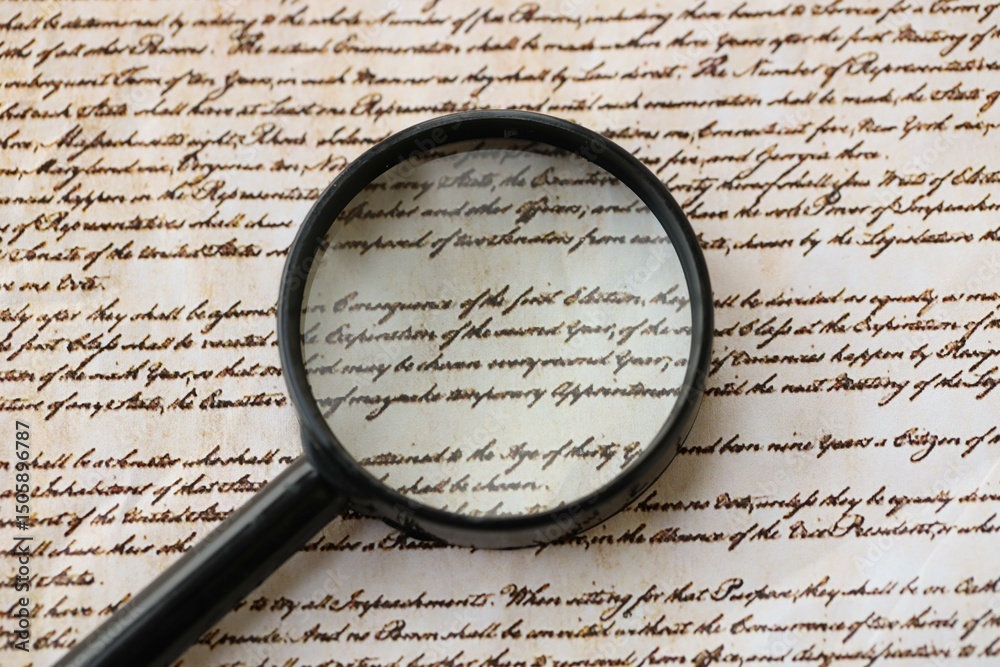 shall be determined by adding to the whole Number of free Persons, including those bound to Service for a Term of
of all other Persons. The actual Enumeration shall be made within three Years after the first Meeting of the
subsequent Term of ten Years, in such Manner as they shall by Law direct. The Number of Representatives
but each State shall have at Least one Representative; and until such enumeration shall be made, the State of
Massachusetts eight, Rhode Connecticut five, New York
Maryland six, Virginia ten, five, and Georgia three.
happen in the Representation from any State, the Executive thereof shall issue Writs of Election
of Representatives shall chuse Speaker and other Officers; and have the sole Power of Impeachment
Senate of the United States shall be composed of two Senators from each chosen by the Legislature
one Vote.
after they shall be assembled in Consequence of the first Election, they shall be divided as equally as
first Class shall be vacated the Expiration of the second Year, of the second Class at the Expiration of
of the sixth Year, so that one third may be chosen every second Year; and if Vacancies happen by
of any State, the Executive thereof may make temporary Appointments until the next Meeting of the
shall be a Senator who shall not have attained to the Age of thirty Years, and been nine Years a Citizen of
Inhabitant of that State shall be chosen.
of the United States have no Vote, unless they be equally divided
shall chuse their other also a in the Absence of the Vice President, or when
States.
shall have to try all Impeachments. When sitting for that Purpose, they shall be on Oath
And no Person shall be convicted without the Concurrence of two thirds
not extend further than to removal from Office, and disqualification to
Adobe Stock | #1505896787